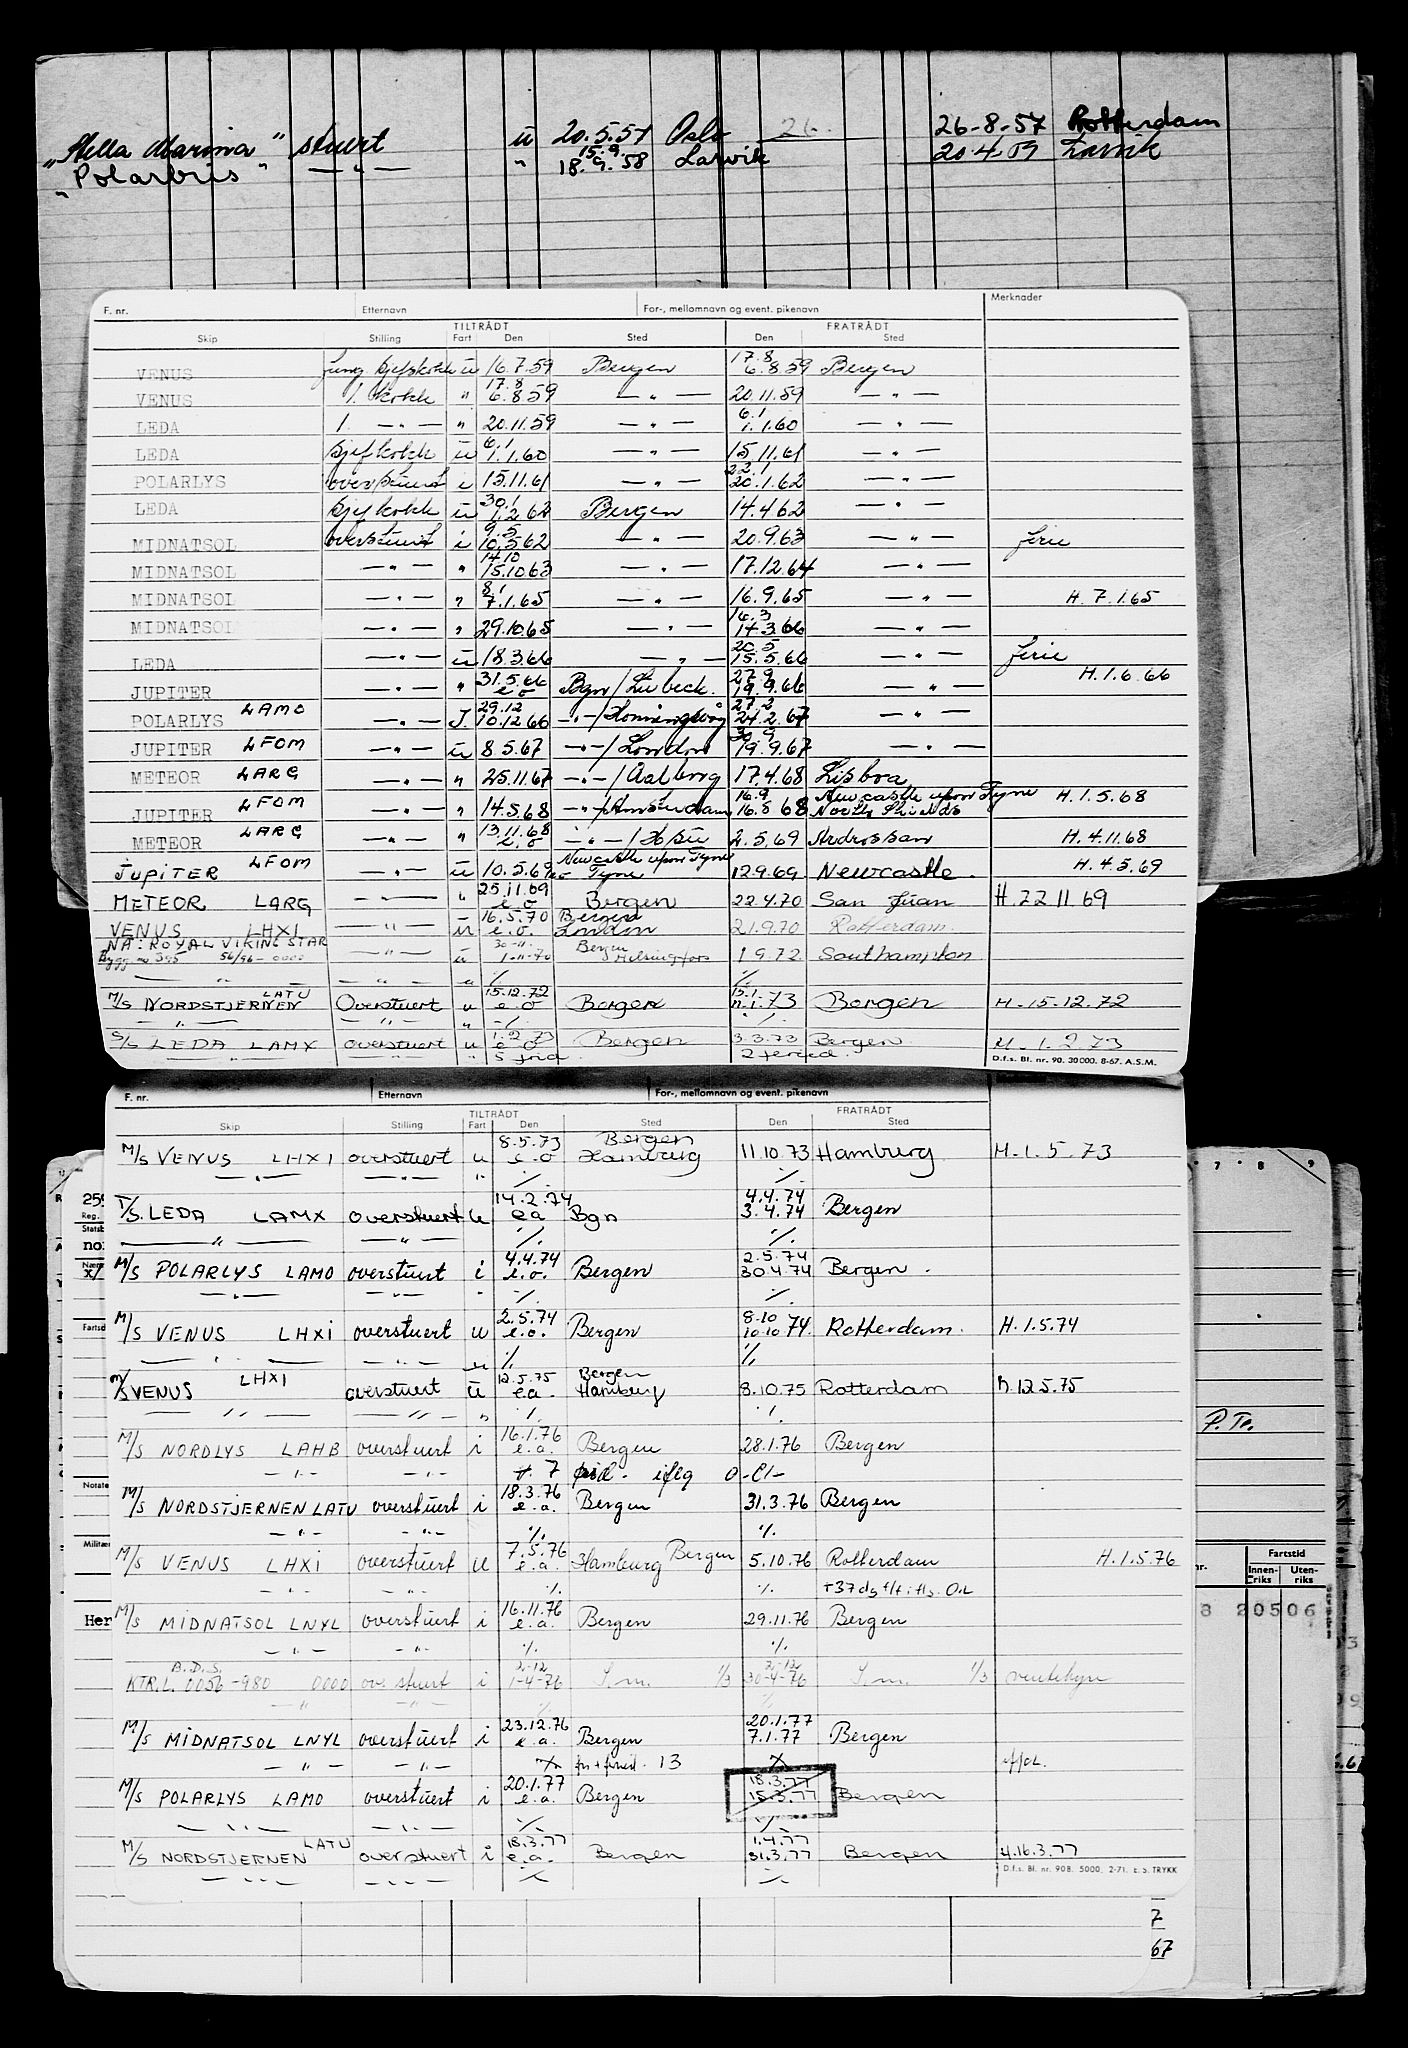 „Stella Marina" stuert ü 20.5.57 Oslo 26. 26-8-57 Rotterdam
„Polarbris" — „ — „ 15.9. 18.9.58 Larvik 20.4.59 Larvik
F. nr. Etternavn For-, mellomnavn og event. pikenavn Merknader
TILTRÅDT FRATRÅDT
Skip Stilling Fart Den Sted Den Sted
VENUS kjefskokk ü 16.7.59 Bergen 17.8 6.8.59 Bergen
VENUS 1. kokk „ 17.8 6.8.59 — „ — 20.11.59 — „ —
LEDA 1. — „ — „ 20.11.59 — „ — 6.1 1.1.60 — „ —
LEDA kjefkokk ü 6.1 1.1.60 — „ — 15.11.61 — „ —
POLARLYS overstuert i 15.11.61 — „ — 22.1 20.1.62 — „ —
LEDA kjefkokk ü 30.1 1.2.62 Bergen 14.4.62 — „ —
MIDNATSOL overstuert i 9.5 10.5.62 — „ — 20.9.63 — „ — ferie
MIDNATSOL — „ — „ 14.10 15.10.63 — „ — 17.12.64 — „ —
MIDNATSOL — „ — „ 8.1 7.1.65 — „ — 16.9.65 — „ — H. 7.1.65
MIDNATSOL — „ — „ 29.10.65 — „ — 16.3 14.3.66 — „ —
LEDA — „ — ü 18.3.66 — „ — 20.5 15.5.66 — „ — ferie
JUPITER — „ — „ 31.5.66 e.o Bgn/Lübeck. 27.9 19.9.66 — „ — H.1.6.66
POLARLYS LAMO — „ — I. 29.12 10.12.66 — „ —/Honningsvåg 27.2 24.2.67 — „ —
JUPITER LFOM — „ — ü 8.5.67 — „ —/London 30.9 19.9.67 — „ —
METEOR LARG — „ — „ 25.11.67 — „ —/Aalborg 17.4.68 Lisboa
JUPITER LFOM — „ — „ 14.5.68 — „ —/Amsterdam 16.9 16.8 68 Newcastle upon Tyne North Shields H.1.5.68
METEOR LARG — „ — „ 13.11.68 e.o — „ — / 2.5.69 Ardrossan H.4.11.68
JUPITER LFOM — „ — ü 10.5.69 Newcastle upon Tyne Tyne 12.9.69 Newcastle. H.4.5.69
METEOR LARG — „ — „ 25.11.69 e.o Bergen 22.4.70 San Juan H.22 11 69
VENUS LHXI — „ — ü 16.5.70 e.o. Bergen London 21.9.70 Rotterdam.
NA: ROYAL VIKING STAR
Bygg nr 395 56/96-0000 — „ — ü 30-11- 1-11-70 Bergen Helsingfors 1 9.72 Southampton
— „ — — „ — „ ./. ./.
M/S NORDSTJERNEN LATU Overstuert u 15.12.72 e.o Bergen 15.1. 11.1.73 Bergen H.15.12.72
— „ — — „ — „ ./. ./.
S/S LEDA LAMX overstuert u 1.2.73 e o Bergen 3.3.73 Bergen H.1.2.73
„ „ „ 5 frid 2 feried. D.f.s. Bl. nr. 90. 30000. 8-67. A.S.M.
F. nr. Etternavn For-, mellomnavn og event. pikenavn
TILTRÅDT FRATRÅDT
Skip Stilling Fart Den Sted Den Sted
M/S VENUS LHXI overstuert u 8.5.73 e.o Bergen Hamburg 11.10.73 Hamburg H.1.5.73
— „ — — „ — „ ./. ./.
T/S. LEDA LAMX overstuert u 14.2.74 ea Bgn 4.4.74 3.4.74 Bergen
— „ — — „ — ./. ./.
M/S POLARLYS LAMO overstuert i 4.4.74 e.o. Bergen 2.5.74 30.4.74 Bergen.
— „ — — „ — „ ./. ./.
M/S VENUS LHXI overstuert u 2.5.74 e.o. Bergen 8.10 10.10 74. Rotterdam. H.1.5.74
— „ — — „ — u ./. ./.
M/S VENUS LHXI overstuert ü 12.5.75 e.a. Bergen Hamburg 8.10.75 Rotterdam h.12.5.75
— „ — — „ — „ ./. ./.
M/S NORDLYS LAHB overstuert i 16.1.76 e.a. Bergen 28.1.76 Bergen
— „ — — „ — 7
M/S NORDSTJERNEN LATU overstuert i 18.3.76 e.a. Bergen 31.3.76 Bergen
— „ — — „ — ./. ./.
M/S VENUS LHXI overstuert u 7.5.76 e.a. Hamburg Bergen 5.10.76 Rotterdam H.1.5.76
— „ — — „ — ./. ./. +37 dg
M/S MIDNATSOL LNYL overstuert i 16.11.76 e.a. Bergen 29.11.76 Bergen
— „ — — „ — ./. ./.
B.D.S.
KTR.L. 0056-980 0000 overstuert i 2-12 1-4-76 1/3 2-12 30-4-76 1/3
— „ — — „ — ./. ./.
M/S MIDNATSOL LNYL overstuert i 23.12.76 e.a. Bergen 20.1.77 7.1.77 Bergen
— „ — — „ — 13
M/S POLARLYS LAMO overstuert i 20.1.77 e.a. Bergen 18.3.77 15.3.77 Bergen
— „ — — „ — ./. ./.
M/S NORDSTJERNEN LATU overstuert i 18.3.77 e.a. Bergen 1.4.77 31.3.77 Bergen H.16.3.77
— „ — — „ — ./. ./. D.f.s. Bl. nr. 90B. 5000. 2-71. E.S. TRYKK
7 8 9
259
Reg.
Statsb
no
x/
Fartsd
P. Te.
Notate
Militær
Her
nr. Fartstid
Innen-riks Uten-riks
8 20506
7
67